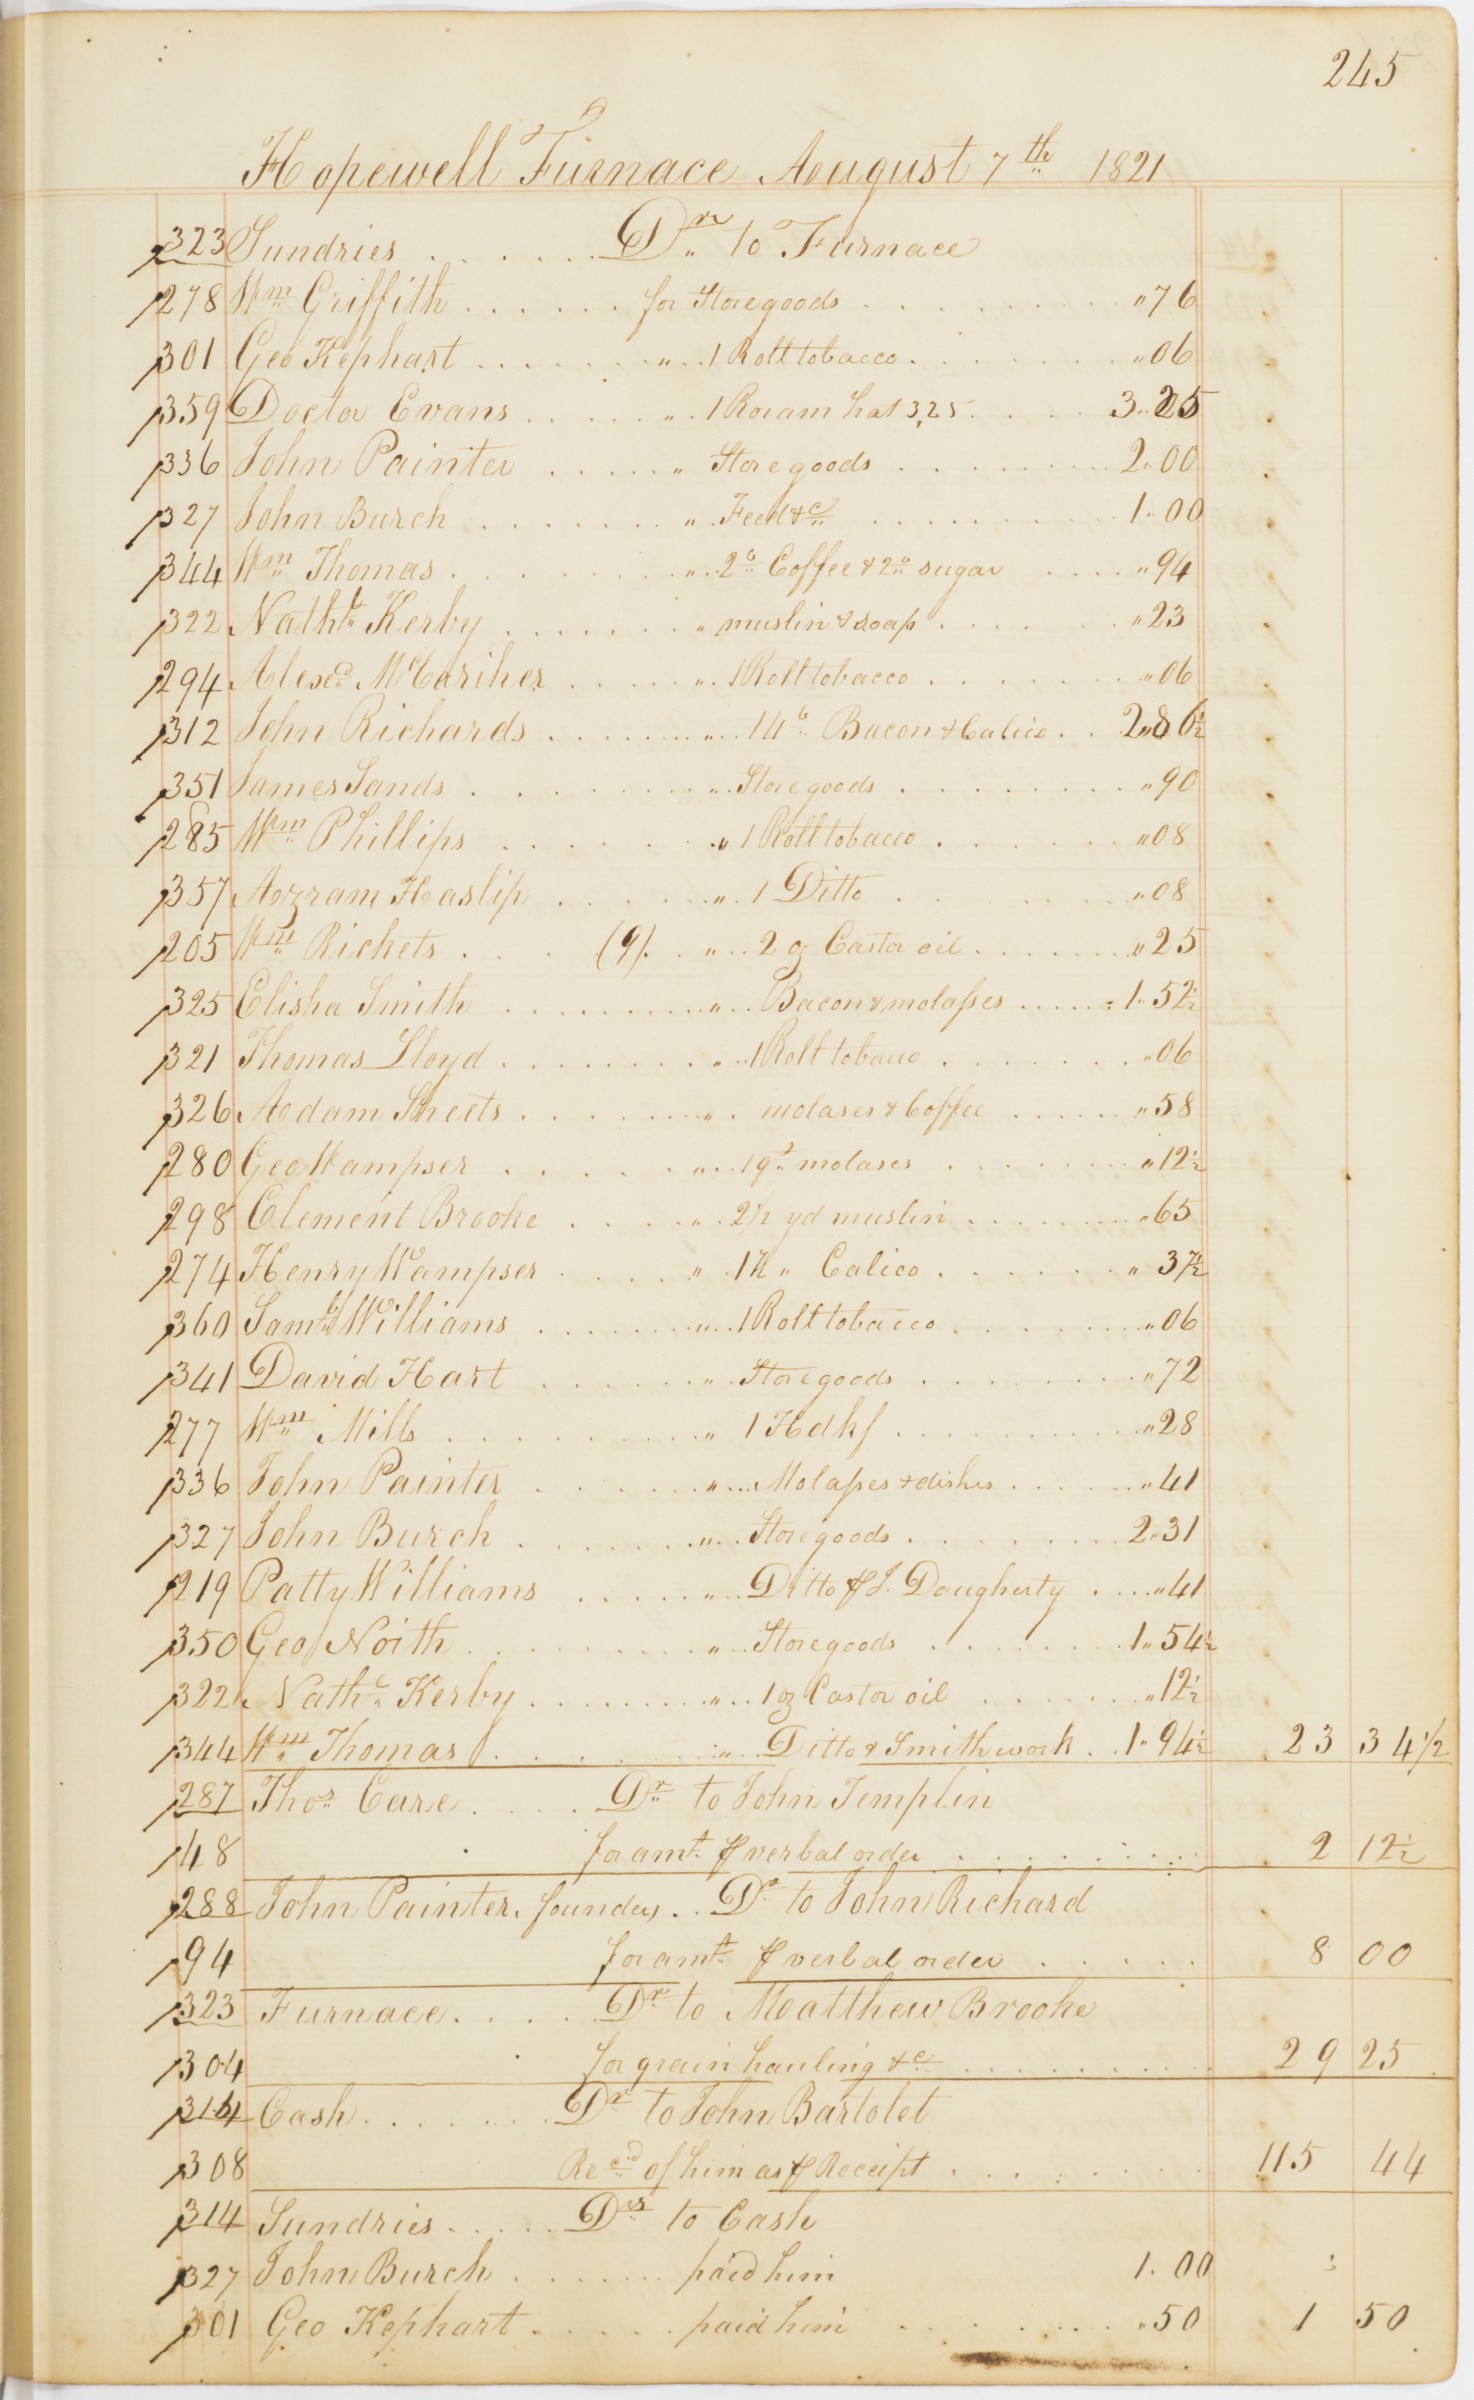 245
Hopewell Furnace August 7th 1821
323 Sundries . . . . . . Drs to Furnace
278 Wm Griffith . . . . . . for Storegoods . . . . . . "76
301 Geo Kephart . . . . . . " . . 1 Roll tobacco . . . . . . "06
359 Doctor Evans . . . . . . " . 1 Roram hat 3,25 . . . . 3"25
336 John Painter . . . . . " Storegoods . . . . . . 2"00
327 John Burch . . . . . . " . Feed &c . . . . . . 1"00
344 Wm Thomas . . . . . . " . . 2lb Coffee & 2lb sugar . . . . "94
322 Nathl Kerby . . . . . . " muslin & soap . . . . . . "23
294 Alexd McCariher . . . . . " . 1 Roll tobacco . . . . . . "06
312 John Richards . . . . . . " . . 14lb Bacon & Calico . . 2"86½
351 James Sands . . . . . . " . Storegoods . . . . . . "90
285 Wm Phillips . . . . . . " 1 Roll tobacco . . . . . . "08
357 Azram Haslip . . . . . " . 1 Ditto . . . . . . "08
205 Wm Rickets . . . (9) . " . . 2 oz Castor oil . . . . . . "25
325 Elisha Smith . . . . . . " . . Bacon & molasses . . . . . 1"52½
321 Thomas Lloyd . . . . . . " . . 1 Roll tobacco . . . . . . "06
326 Adam Sheets . . . . . . " . molases & Coffee . . . . . "58
280 Geo Wampser . . . . . " . . 1 qt molases . . . . . . "12½
298 Clement Brooke . . . . " . 2½ yd muslin . . . . . . "65
274 Henry Wampser . . . . " . 1½ " Calico . . . . . . " 37½
360 Saml Williams . . . . . . " . . 1 Roll tobacco . . . . . . "06
341 David Hart . . . . . " . Storegoods . . . . . . "72
277 Wm Mills . . . . . . " 1 Hdkf . . . . . . "28
336 John Painter . . . . . " . . . Molasses & dishes . . . . . "41
327 John Burch . . . . . . " . . Storegoods . . . . . . 2"31
219 Patty Williams . . . . . " . . Ditto ⅌ J. Dougherty . . . . "41
350 Geo North . . . . . . " . . Storegoods . . . . . . 1"54½
322 Nathl Kerby . . . . . . " . . 1 oz Castor oil . . . . . . "12½
344 Wm Thomas . . . . . . " . . Ditto & Smith work . . 1"94½ 23 34½
287 Thos Care . . . . Dr to John Templin
48 for amt ⅌ verbal order . . . . . . 2 12½
288 John Painter, founder, . . Dr to John Richard
94 for amt ⅌ verbal order . . . . . 8 00
323 Furnace . . . . . Dr to Matthew Brooke
304 for grain hauling &c . . . . . . 29 25
314 Cash . . . . . . Dr to John Bartolet
308 Recd of him as ⅌ Receipt . . . . . . 115 44
314 Sundries . . . . . Drs to Cash
327 John Burch . . . . . . paid him 1.00
301 Geo Kephart . . . . . paid him . . . . . . "50 1 50